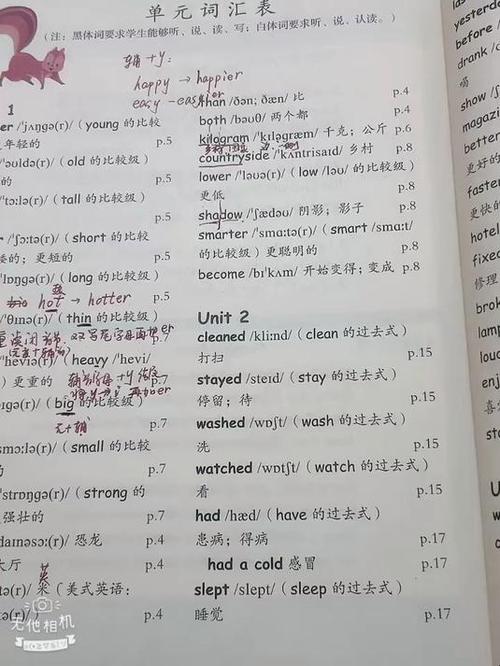 单元词汇表
(注:黑体词要求学生能够听、说、读、写;白体词要求听、说、认读。)
辅+y:
happy → happier
easy → easier
1
er /ˈjʌŋgə(r)/ (young 的比较
年轻的 p.5
/ˈəʊldə(r)/ (old 的比较级)
的 p.5
/ˈtɔːlə(r)/ (tall 的比较级)
p.5
/ˈʃɔːtə(r)/ (short 的比较
矮的;更短的 p.5
ˈlɒŋgə(r)/ (long 的比较级)
的 p.5
hot → hotter
ˈθɪnə(r)/ (thin 的比较级)
双写尾字母
p.7
ˈheviə(r)/ (heavy /ˈhevi/
) 更重的 p.7
+y
ɪgə(r)/ (big 的比较级)
p.7
smɔːlə(r)/ (small 的比较
p.7
ˈstrɒŋgə(r)/ (strong 的
强壮的 p.7
daɪnəsɔː(r)/ 恐龙 p.4
大厅 p.4
tə(r)/ 米 (美式英语:
tə(r)/) p.4
than /ðən; ðæn/ 比 p.4
both /bəʊθ/ 两个都 p.4
kilogram /ˈkɪləgræm/ 千克;公斤 p.6
countryside /ˈkʌntrisaɪd/ 乡村 p.8
lower /ˈləʊə(r)/ (low /ləʊ/ 的比较级)
更低 p.8
shadow /ˈʃædəʊ/ 阴影;影子 p.8
smarter /ˈsmɑːtə(r)/ (smart /smɑːt/
的比较级) 更聪明的 p.8
become /bɪˈkʌm/ 开始变得;变成 p.8
Unit 2
cleaned /kliːnd/ (clean 的过去式)
打扫 p.15
stayed /steɪd/ (stay 的过去式)
停留;待 p.15
washed /wɒʃt/ (wash 的过去式)
洗 p.15
watched /wɒtʃt/ (watch 的过去式)
看 p.15
had /hæd/ (have 的过去式)
患病;得病 p.17
had a cold 感冒 p.17
slept /slept/ (sleep 的过去式)
睡觉 p.17
yesterd
before /
drank /
show /ʃ
magazi
better
更好的
faster
更快的
hotel
fixed
修理
无他相机